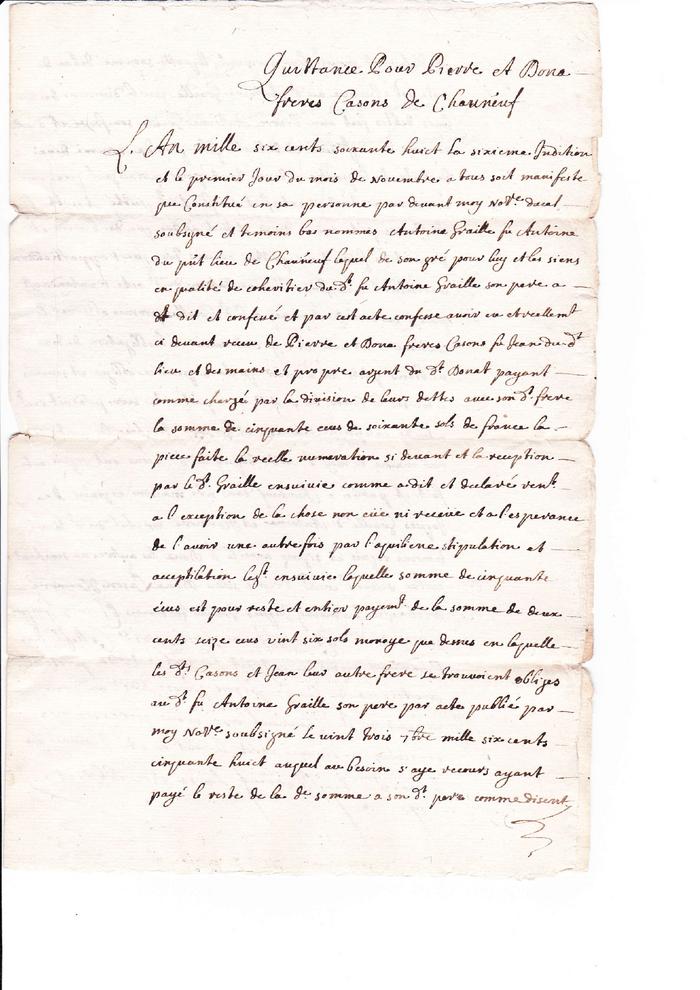 Quittance Pour Pierre et Bona
freres Casons de Chauneuf
L An mille six cents soixante huict la sixieme Indition
et le premier Jour du mois de Novembre a tous soit manifeste
que Constitué en sa personne par devant moy Nore ducal
soubsigné et temoins bas nommes Antoine Graille fu Antoine
du pnt lieu de Chauneuf lequel de son gré pour luy et les siens
en qualité de coheritier du dt fu Antoine Graille son pere a
dit et confessé et par cest acte confesse avoir eu et reellemt
ci devant receu de Pierre et Bona freres Casons fu Jean du dt
lieu et des mains et propre argent du dt Bonat payant
comme chargé par la division de leurs dettes avec son dt frere
la somme de cinquante ecus de soixante sols de france la
piece faite la reelle numeration si devant et la reception
par le dt Graille ensuivie comme a dit et declaré rent
a l'exception de la chose non eüe ni receüe et a l'esperance
de l'avoir une autre fois par l'aquiliene stipulation et
acceptilation ensuivie laquelle somme de cinquante
écus est pour reste et entier payemt de la somme de deux
cents seize ecus vint six sols monoye que dessus en laquelle
les dts Casons et Jean leur autre frere se trouvoient obliges
au dt fu Antoine Graille son pere par acte publié par
moy Nore soubsigné le vint trois 7bre mille six cents
cinquante huict auquel au besoin s'aye recours ayant
payé le reste de la de somme a son dt pere comme disent